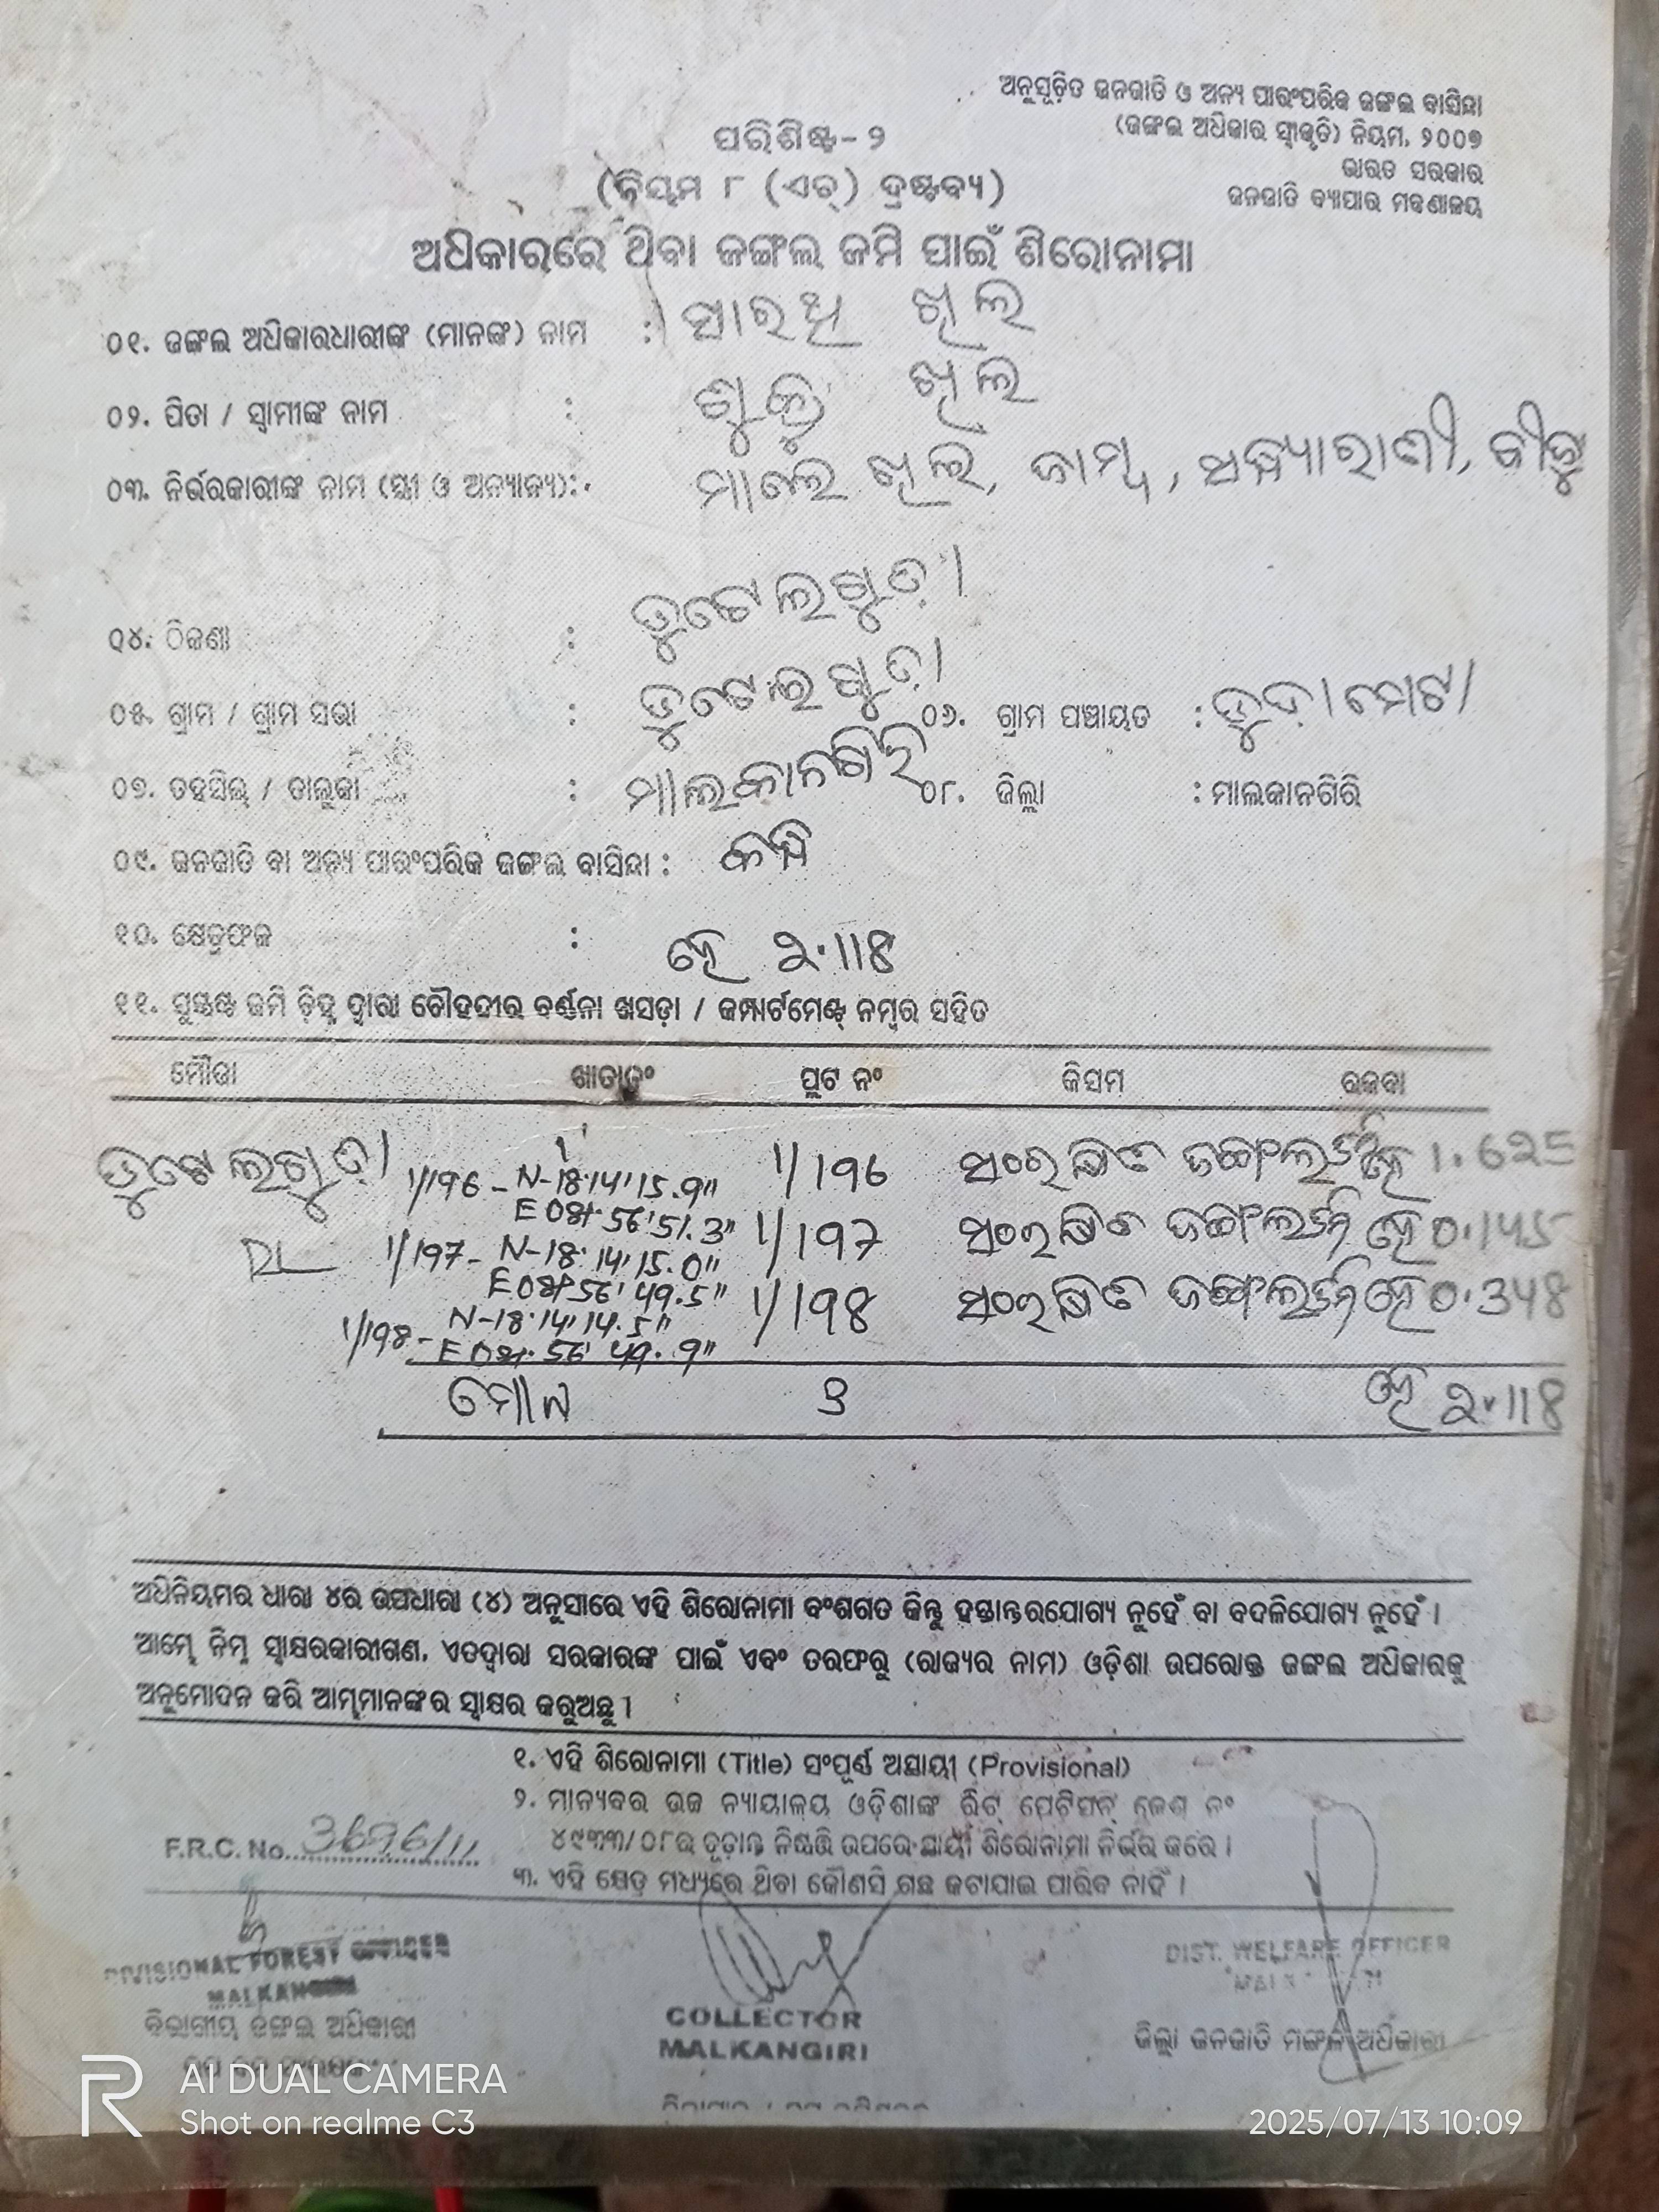 ଅନୁସୂଚିତ ଜନଜାତି ଓ ଅନ୍ୟ ପାରଂପରିକ ଜଙ୍ଗଲ ବାସିନ୍ଦା
(ଜଙ୍ଗଲ ଅଧିକାର ସ୍ୱୀକୃତି) ନିୟମ, ୨୦୦୭
ଭାରତ ସରକାର
ଜନଜାତି ବ୍ୟାପାର ମନ୍ତ୍ରଣାଳୟ
ପରିଶିଷ୍ଟ-୨
(ନିୟମ ୮ (ଏଚ୍) ଦ୍ରଷ୍ଟବ୍ୟ)
ଅଧିକାରରେ ଥିବା ଜଙ୍ଗଲ ଜମି ପାଇଁ ଶିରୋନାମା
୦୧. ଜଙ୍ଗଲ ଅଧିକାରଧାରୀଙ୍କ (ମାନଙ୍କ) ନାମ : ଖିଲ
୦୨. ପିତା / ସ୍ୱାମୀଙ୍କ ନାମ : ଖିଲ
୦୩. ନିର୍ଭରକାରୀଙ୍କ ନାମ (ସ୍ତ୍ରୀ ଓ ଅନ୍ୟାନ୍ୟ): ଖିଲ,
୦୪. ଠିକଣା :
୦୫. ଗ୍ରାମ / ଗ୍ରାମ ସଭା : ୦୬. ଗ୍ରାମ ପଞ୍ଚାୟତ :
୦୭. ତହସିଲ୍ / ତାଲୁକା : ମାଲକାନଗିରି ୦୮. ଜିଲ୍ଲା : ମାଲକାନଗିରି
୦୯. ଜନଜାତି ବା ଅନ୍ୟ ପାରଂପରିକ ଜଙ୍ଗଲ ବାସିନ୍ଦା : କନ୍ଧ
୧୦. କ୍ଷେତ୍ରଫଳ : ହେ ୨.118
୧୧. ସୁସ୍ପଷ୍ଟ ଜମି ଚିହ୍ନ ଦ୍ୱାରା ଚୌହଦ୍ଦୀର ବର୍ଣ୍ଣନା ଖସଡ଼ା / କମ୍ପାର୍ଟମେଣ୍ଟ୍ ନମ୍ବର ସହିତ
ମୌଜା ଖାତା ନଂ ପ୍ଲଟ ନଂ କିସମ ରକବା
1/196 - N-18·14'15.9" 1/196 ସଂରକ୍ଷିତ ଜଙ୍ଗଲ ଜମି ହେ 1.625
E 081·56'51.3"
1/197 - N-18·14'15.0" 1/197 ସଂରକ୍ଷିତ ଜଙ୍ଗଲ ଜମି ହେ 0.145
E 081·56'49.5"
1/198 - N-18·14'14.5" 1/198 ସଂରକ୍ଷିତ ଜଙ୍ଗଲ ଜମି ହେ 0.348
E 081·56'49.9"
ମୋଟ 3 ହେ ୨.118
ଅଧିନିୟମର ଧାରା ୪ର ଉପଧାରା (୪) ଅନୁସାରେ ଏହି ଶିରୋନାମା ବଂଶଗତ କିନ୍ତୁ ହସ୍ତାନ୍ତରଯୋଗ୍ୟ ନୁହେଁ ବା ବଦଳିଯୋଗ୍ୟ ନୁହେଁ ।
ଆମ୍ଭେ ନିମ୍ନ ସ୍ୱାକ୍ଷରକାରୀଗଣ, ଏତଦ୍ୱାରା ସରକାରଙ୍କ ପାଇଁ ଏବଂ ତରଫରୁ (ରାଜ୍ୟର ନାମ) ଓଡ଼ିଶା ଉପରୋକ୍ତ ଜଙ୍ଗଲ ଅଧିକାରକୁ
ଅନୁମୋଦନ କରି ଆମ୍ଭମାନଙ୍କର ସ୍ୱାକ୍ଷର କରୁଅଛୁ ।
୧. ଏହି ଶିରୋନାମା (Title) ସଂପୂର୍ଣ୍ଣ ଅସ୍ଥାୟୀ (Provisional)
୨. ମାନ୍ୟବର ଉଚ୍ଚ ନ୍ୟାୟାଳୟ ଓଡ଼ିଶାଙ୍କ ରିଟ୍ ପେଟିସନ୍ କେଶ୍ ନଂ
୪୯୩୩/୦୮ର ଚୂଡ଼ାନ୍ତ ନିଷ୍ପତ୍ତି ଉପରେ ସ୍ଥାୟୀ ଶିରୋନାମା ନିର୍ଭର କରେ ।
F.R.C. No. 3696/11
୩. ଏହି କ୍ଷେତ୍ର ମଧ୍ୟରେ ଥିବା କୌଣସି ଗଛ କଟାଯାଇ ପାରିବ ନାହିଁ ।
DIVISIONAL FOREST OFFICER
MALKANGIRI
ବିଭାଗୀୟ ଜଙ୍ଗଲ ଅଧିକାରୀ
COLLECTOR
MALKANGIRI
DIST. WELFARE OFFICER
ଜିଲ୍ଲା ଜନଜାତି ମଙ୍ଗଳ ଅଧିକାରୀ
AI DUAL CAMERA
Shot on realme C3
2025/07/13 10:09